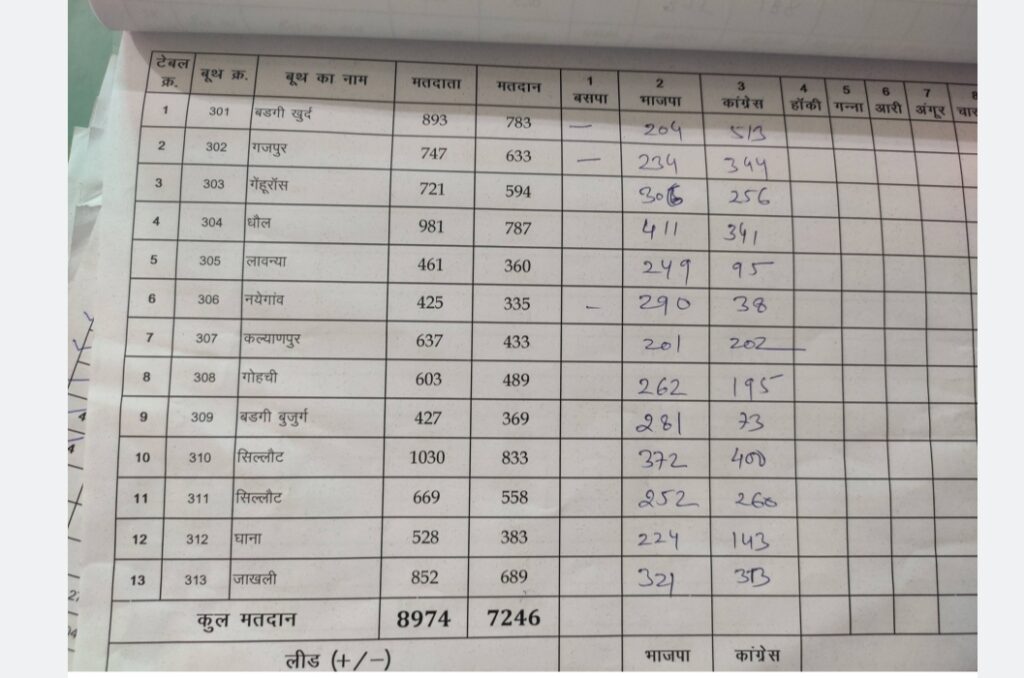 टेबल क्र. बूथ क्र. बूथ का नाम मतदाता मतदान 1 बसपा 2 भाजपा 3 कांग्रेस 4 हॉकी 5 गन्ना 6 आरी 7 अंगूर 8
1 301 बडगी खुर्द 893 783 — 204 513
2 302 गजपुर 747 633 — 234 344
3 303 गेंहूरॉस 721 594 306 256
4 304 धौल 981 787 411 341
5 305 लावन्या 461 360 249 95
6 306 नयेगांव 425 335 - 290 38
7 307 कल्याणपुर 637 433 201 202
8 308 गोहची 603 489 262 195
9 309 बडगी बुजुर्ग 427 369 281 73
10 310 सिल्लौट 1030 833 372 400
11 311 सिल्लौट 669 558 252 260
12 312 घाना 528 383 224 143
13 313 जाखली 852 689 321
कुल मतदान 8974 7246
लीड (+/-) भाजपा कांग्रेस